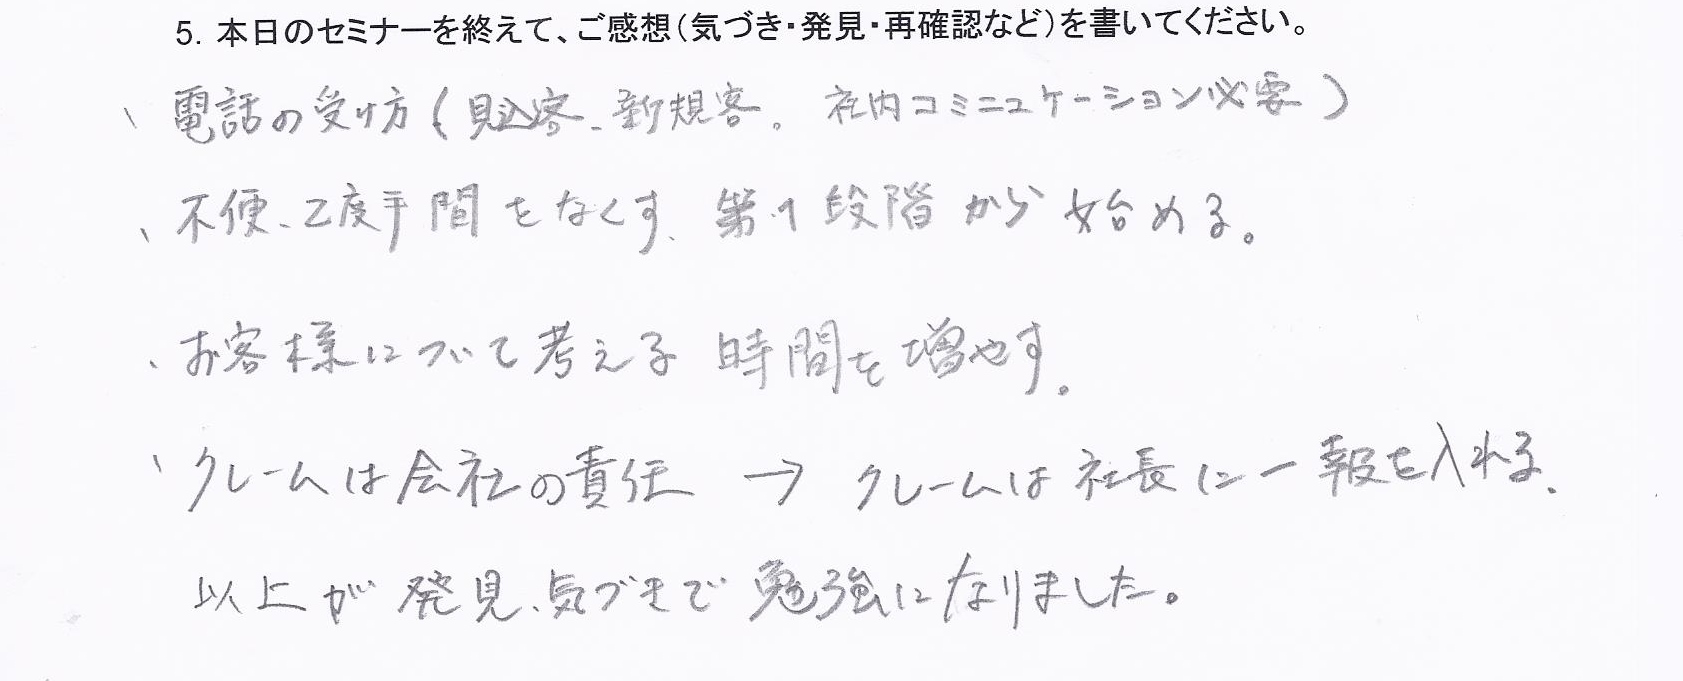 5. 本日のセミナーを終えて、ご感想(気づき・発見・再確認など)を書いてください。
、電話の受け方(見込客、新規客。社内コミニュケーション必要)
、不便、2度手間をなくす、第1段階から始める。
、お客様について考える時間を増やす。
、クレームは会社の責任 → クレームは社長に一報を入れる、
以上が発見、気づきで勉強になりました。